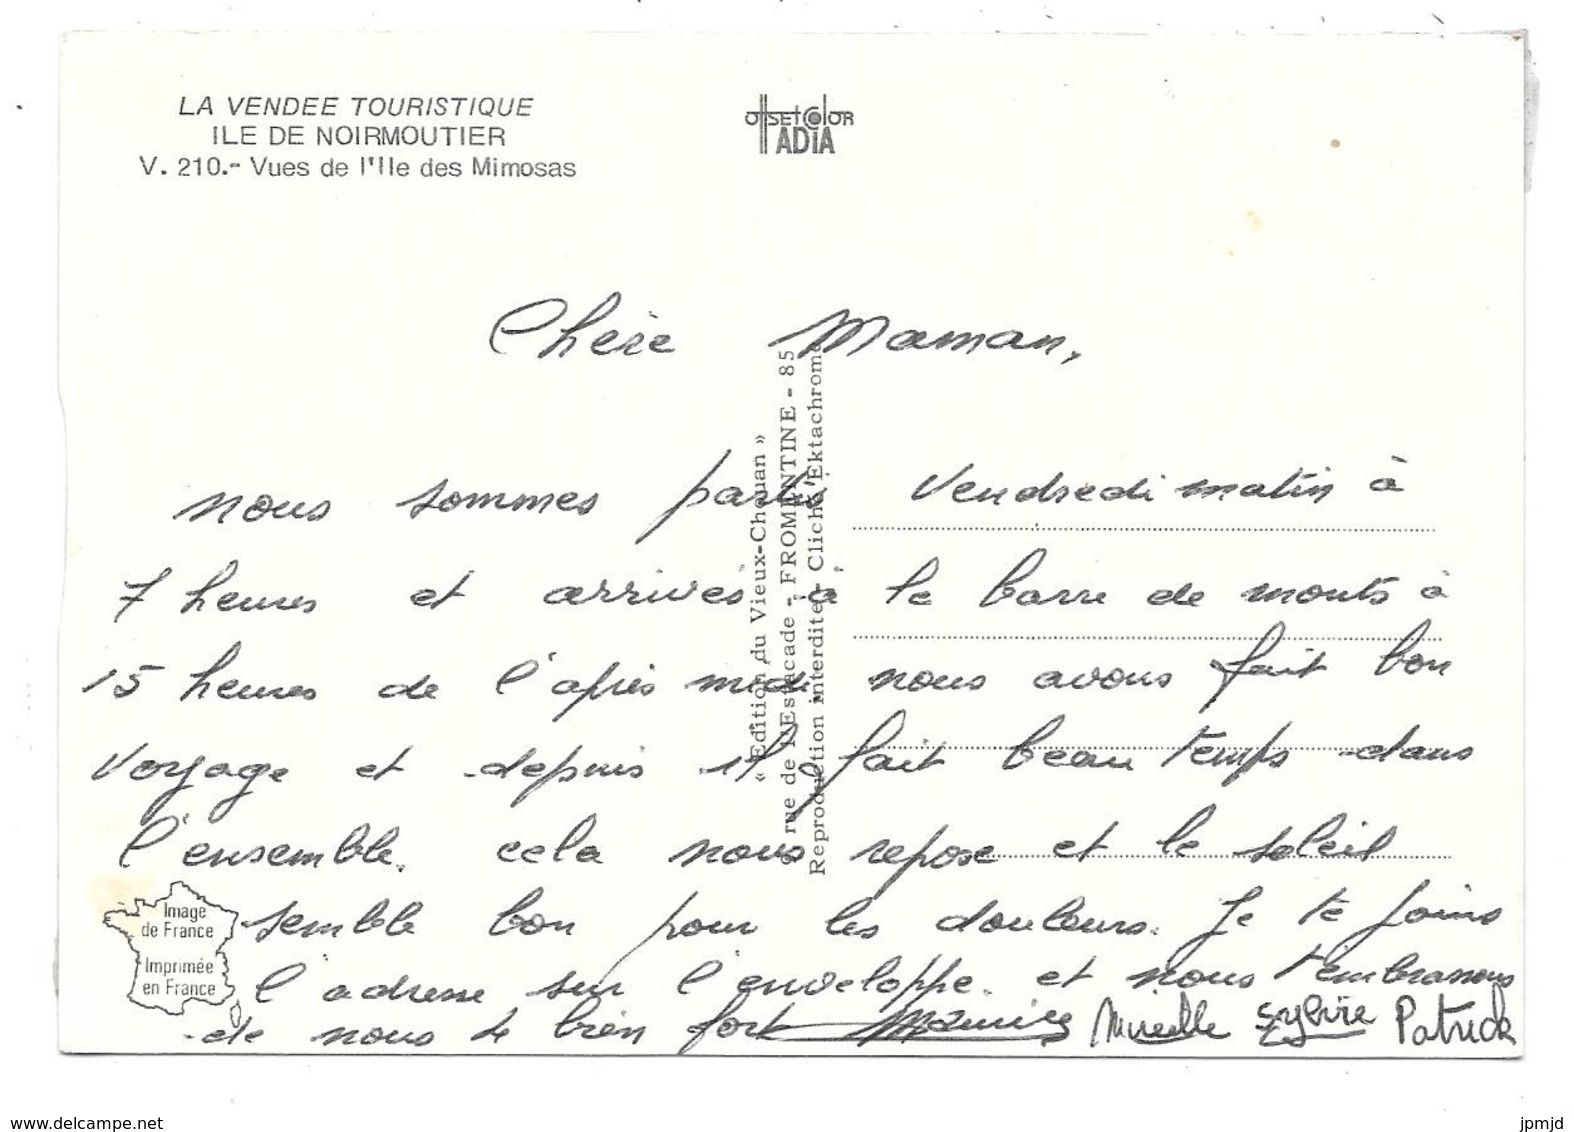 LA VENDEE TOURISTIQUE
ILE DE NOIRMOUTIER
V. 210.- Vues de l'Ile des Mimosas
OffSEt COlOR
ADIA
« Edition du Vieux-Chouan »
9 rue de l'Estacade - FROMENTINE - 85
Reproduction interdite - Cliché Ektachrome
Chère Maman,
nous sommes partis Vendredi matin à
7 heures et arrivés à la barre de monts à
15 heures de l'après midi nous avons fait bon
voyage et depuis il fait beau temps dans
l'ensemble. cela nous repose et le soleil
semble bon pour les douleurs. Je te joins
l'adresse sur l'enveloppe. et nous t'embrassons
de nous 4 bien fort Maurice Mireille Sylvie Patrick
Image
de France
Imprimée
en France
www.delcampe.net
jpmjd